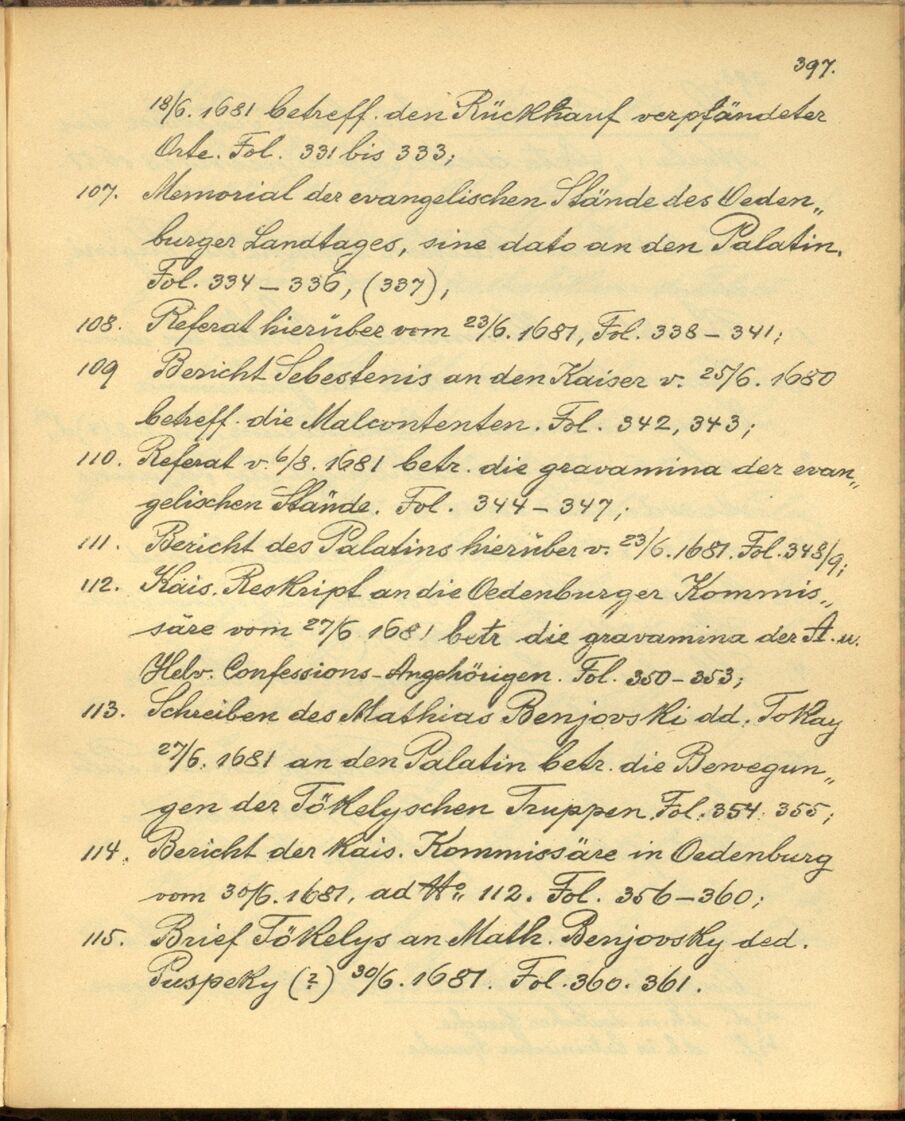 397.
18/6. 1681 betreff. den Rückkauf verpfändeter
Orte. Fol. 331 bis 333;
107. Memorial der evangelischen Stände des Oeden„
burger Landtages, sine dato an den Palatin.
Fol. 334 – 336, (337);
108. Referat hierüber vom 23/6. 1681, Fol. 338 – 341;
109 Bericht Sebestenis an den Kaiser v. 25/6. 1680
betreff. die Malcontenten. Fol. 342, 343;
110. Referat v. 6/8. 1681 betr. die gravamina der evan„
gelischen Stände. Fol. 344 – 347;
111. Bericht des Palatins hierüber v. 23/6. 1681. Fol. 348/9;
112. Kais. Reskript an die Oedenburger Kommis„
säre vom 27/6 1681 betr die gravamina der A. u.
Helv. Confessions-Angehörigen. Fol. 350–353;
113. Schreiben des Mathias Benjovski dd. Tokay
27/6. 1681 an den Palatin betr. die Bewegun„
gen der Tökelyschen Truppen. Fol. 354. 355;
114. Bericht der Kais. Kommissäre in Oedenburg
vom 30/6. 1681, ad No 112. Fol. 356–360;
115. Brief Tökelys an Math. Benjovsky ded.
Puspeky (?) 30/6. 1681. Fol. 360. 361.